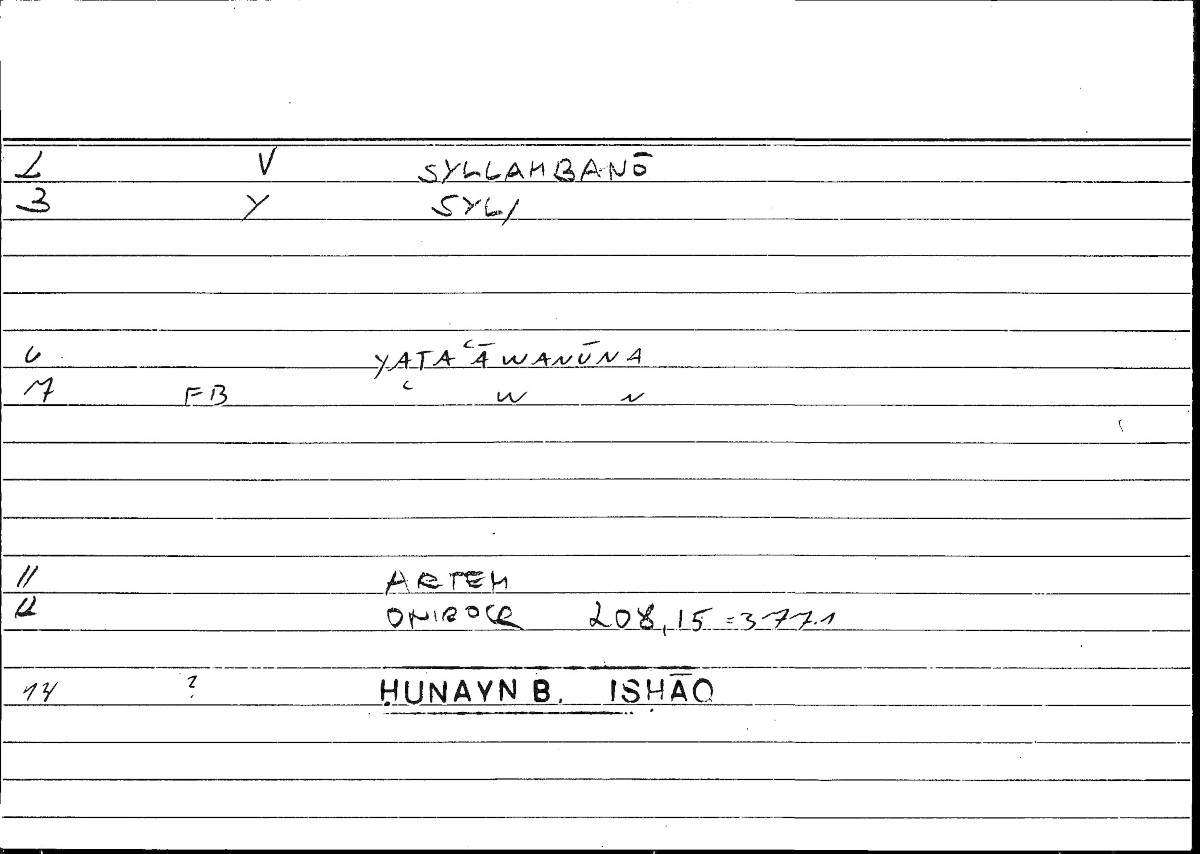 2 V SYLLAMBANŌ
3 Y SYL/
6 YATAʿĀWANŪNA
7 FB ʿ W N
11 ARTEM
12 ONIROCR 208,15 = 377.1
14 ? ḤUNAYN B. ISḤĀQ